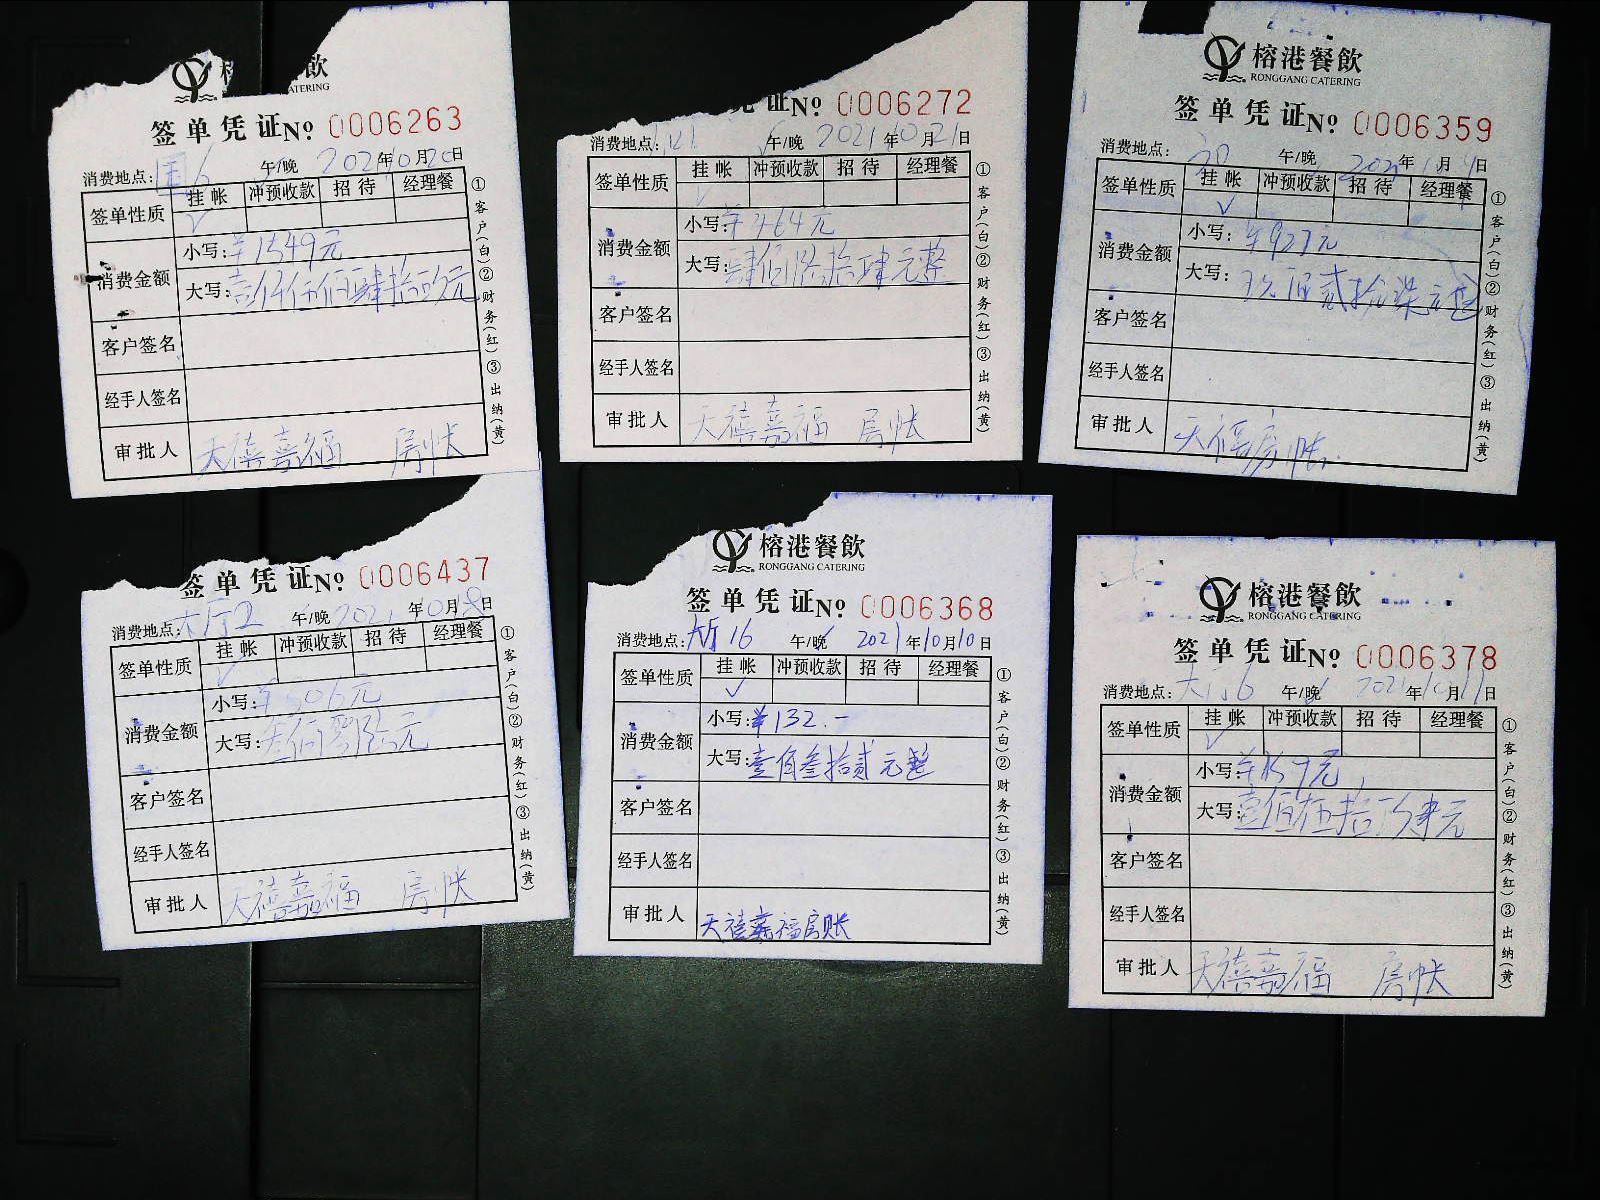 飲
ATERING
签单凭证 No 0006263
消费地点: 6 午/晚 2021年10月20日
签单性质 挂帐 冲预收款 招待 经理餐
√
消费金额 小写: ¥1549元
大写: 壹仟伍佰肆拾玖元
客户签名
经手人签名
审批人 天禧嘉福 房帐
①客户(白)②财务(红)③出纳(黄)
凭证 No 0006272
消费地点: 午/晚 2021年10月21日
签单性质 挂帐 冲预收款 招待 经理餐
√
消费金额 小写: ¥464元
大写: 肆佰陆拾肆元整
客户签名
经手人签名
审批人 天禧嘉福 房帐
①客户(白)②财务(红)③出纳(黄)
榕港餐飲
RONGGANG CATERING
签单凭证 No 0006359
消费地点: 午/晚 年 月 日
签单性质 挂帐 冲预收款 招待 经理餐
√
消费金额 小写: ¥927元
大写: 玖佰贰拾柒元整
客户签名
经手人签名
审批人 天禧房帐
①客户(白)②财务(红)③出纳(黄)
签单凭证 No 0006437
消费地点: 大厅2 午/晚 2021年10月18日
签单性质 挂帐 冲预收款 招待 经理餐
√
消费金额 小写: 306元
大写: 叁佰零陆元
客户签名
经手人签名
审批人 天禧嘉福 房帐
①客户(白)②财务(红)③出纳(黄)
榕港餐飲
RONGGANG CATERING
签单凭证 No 0006368
消费地点: 大厅16 午/晚 2021年10月10日
签单性质 挂帐 冲预收款 招待 经理餐
√
消费金额 小写: ¥132.-
大写: 壹佰叁拾贰元整
客户签名
经手人签名
审批人 天禧嘉福房账
①客户(白)②财务(红)③出纳(黄)
榕港餐飲
RONGGANG CATERING
签单凭证 No 0006378
消费地点: 大厅6 午/晚 2021年10月11日
签单性质 挂帐 冲预收款 招待 经理餐
√
消费金额 小写: ¥159元
大写: 壹佰伍拾玖元
客户签名
经手人签名
审批人 天禧嘉福 房帐
①客户(白)②财务(红)③出纳(黄)